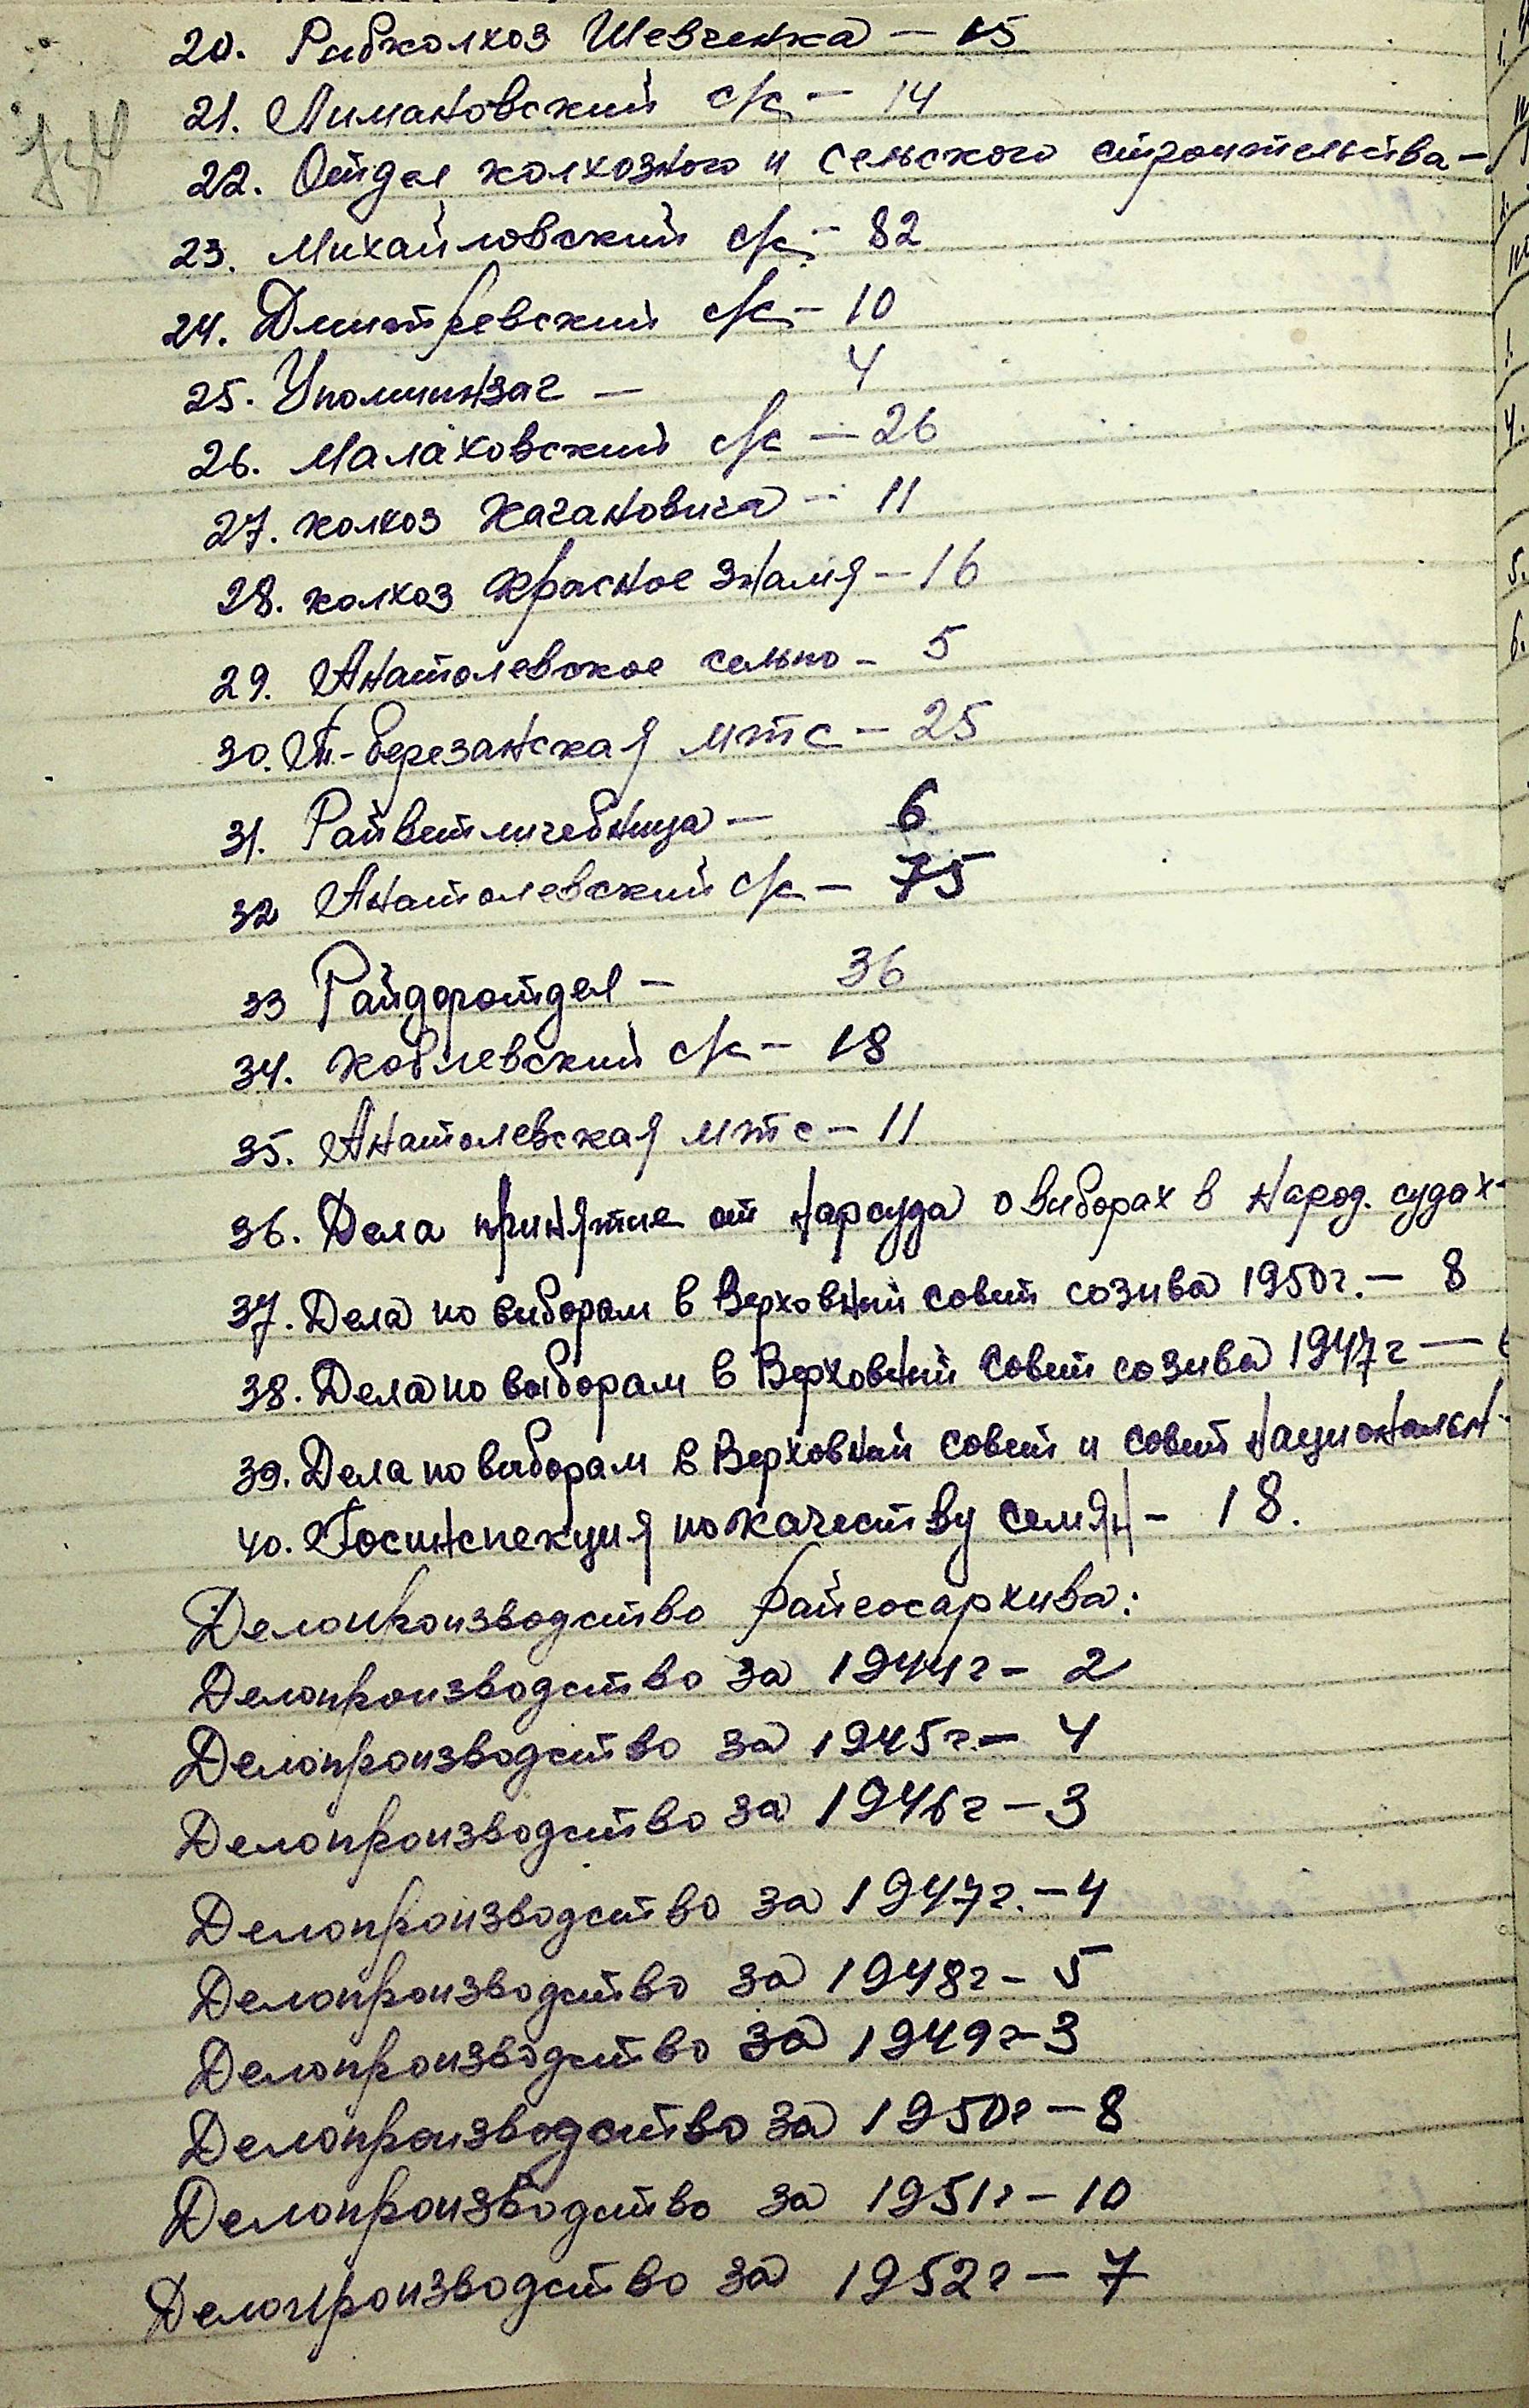 20. Рибколхоз Шевченка — 15
21. Лимановский с/с — 14
22. Отдел колхозного и сельского строительства —
23. Михайловский с/с — 82
24. Дмитревский с/с — 10
25. Уполминзаг — 4
26. Малаховский с/с — 26
27. колхоз Кагановича — 11
28. колхоз Красное Знамя — 16
29. Анатолевское сельпо — 5
30. Т.-Березанская мтс — 25
31. Райветлечебница — 6
32 Анатолевский с/с — 75
33 Райдоротдел — 36
34. Коблевский с/с — 18
35. Анатолевская мтс — 11
36. Дела принятие от нарсуда о виборах в народ. судах-
37. Дела по виборам в Верховний совет созива 1950г. — 8
38. Дела по выборам в Верховний Совет созива 1947г —
39. Дела по виборам в Верховний совет и совет национальн-
40. Госинспекция по качеству семян — 18.
Делопроизводство райгосархива:
Делопроизводство за 1944г — 2
Делопроизводство за 1945г. — 4
Делопроизводство за 1946г — 3
Делопроизводство за 1947г. — 4
Делопроизводство за 1948г — 5
Делопроизводство за 1949г — 3
Делопроизводство за 1950г — 8
Делопроизводство за 1951г — 10
Делопроизводство за 1952г — 7